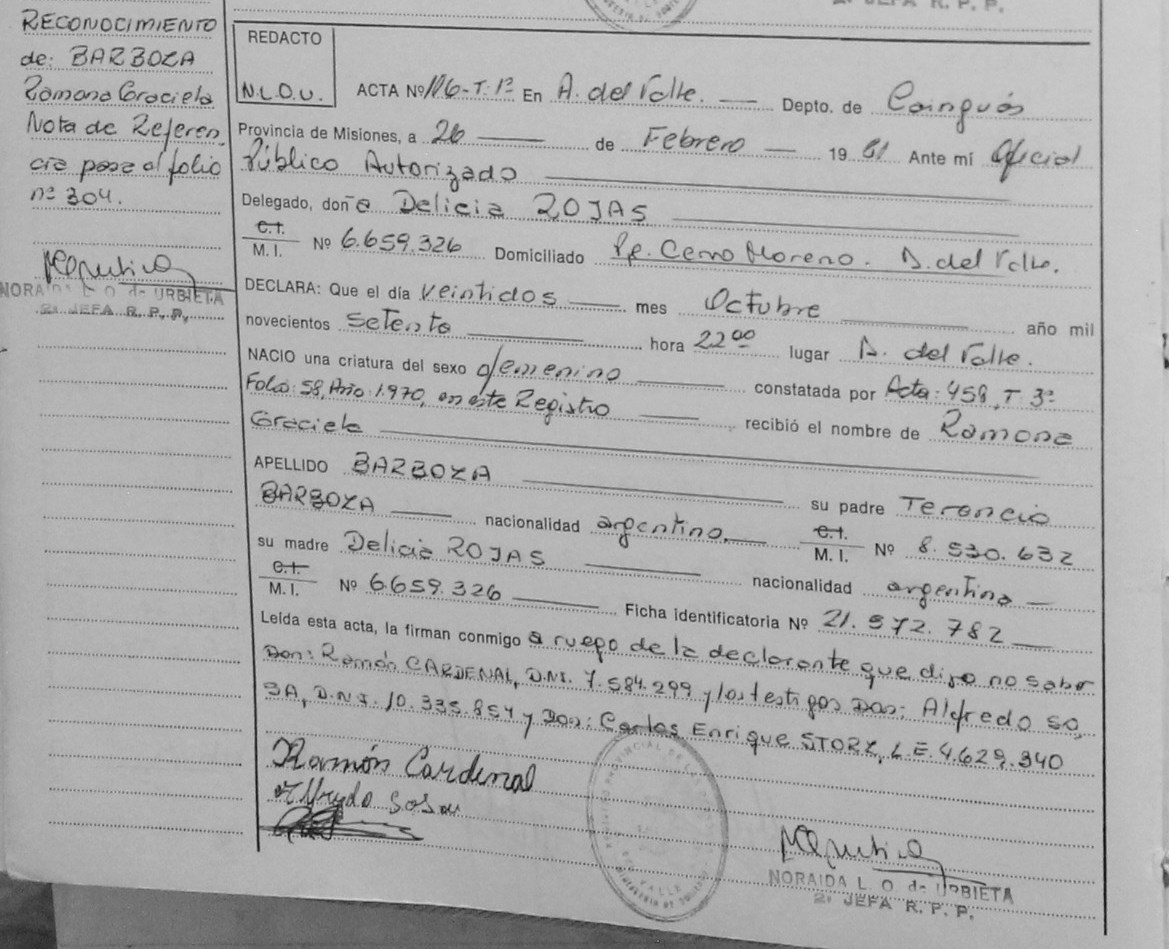 2ª JEFA R. P. P.
RECONOCIMIENTO
de: BARBOZA
Ramona Graciela
Nota de Referen
cia pasa al folio
nº 304.
NORAIDA L. O. de URBIETA
2ª JEFA R. P. P.
REDACTO
N.L.O.U.
ACTA Nº 116-T.1º En A. del Valle. Depto. de Cainguás
Provincia de Misiones, a 26 de Febrero 1981 Ante mí Oficial
Público Autorizado
Delegado, doña Delicia ROJAS
C.I.
M. I. Nº 6.659.326 Domiciliado Pje. Cerro Moreno. A. del Valle.
DECLARA: Que el día veintidos mes Octubre año mil
novecientos setenta hora 22ºº lugar A. del Valle.
NACIO una criatura del sexo femenino constatada por Acta: 458, T 3º
Folio: 58, Año: 1.970, en este Registro recibió el nombre de Ramona
Graciela
APELLIDO BARBOZA su padre Terencio
BARBOZA nacionalidad argentino. C.I.
M. I. Nº 8.530.632
su madre Delicia ROJAS nacionalidad argentina
C.I.
M. I. Nº 6.659.326 Ficha identificatoria Nº 21.572.782
Leída esta acta, la firman conmigo a ruego de la declarante que dijo no saber
Don: Ramón CARDENAL, D.N.I. 7.584.299 y los testigos Don: Alfredo SO,
SA, D.N.I. 10.335.854 y Don: Carlos Enrique STORZ, L.E. 4.629.340
Ramón Cardenal
Alfredo Sosa
NORAIDA L. O. de URBIETA
2ª JEFA R. P. P.